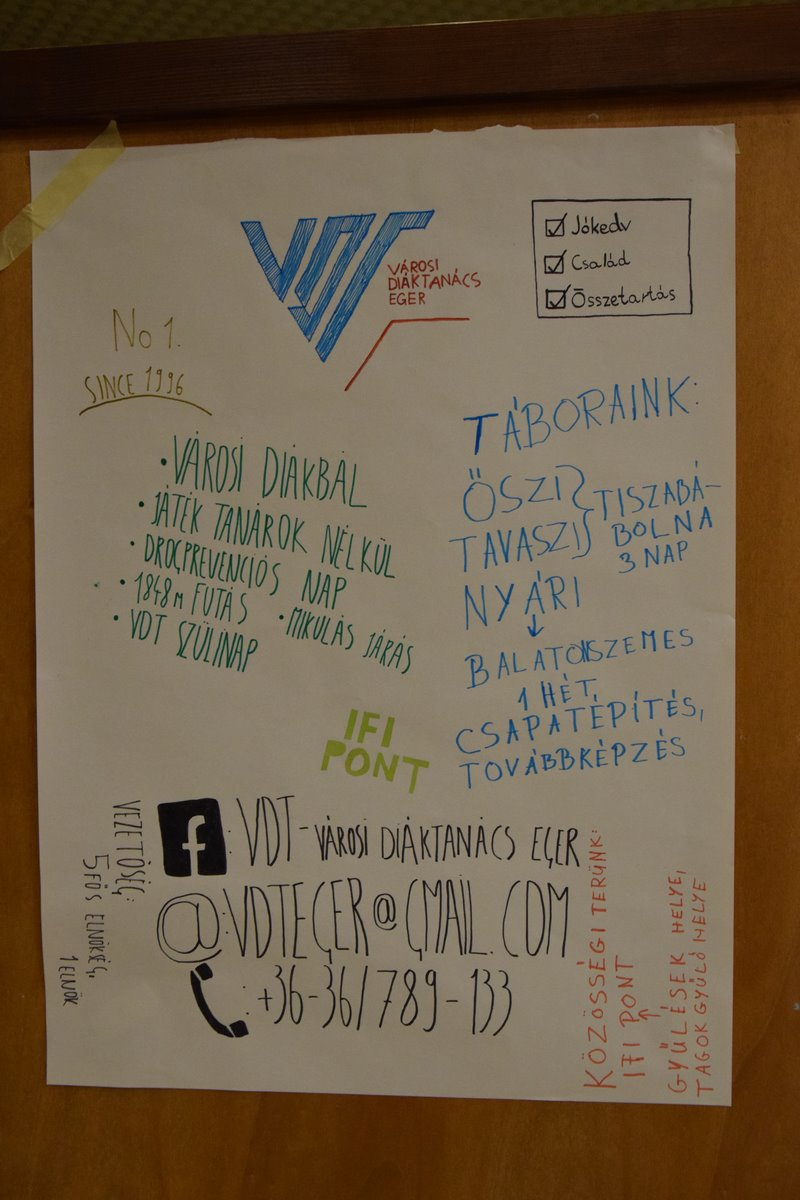 VDT
VÁROSI
DIÁKTANÁCS
EGER
Jókedv
Család
Összetartás
No 1.
SINCE 1996
• VÁROSI DIÁKBÁL
• JÁTÉK TANÁROK NÉLKÜL
• DROGPREVENCIÓS NAP
• 1848m FUTÁS
• MIKULÁS JÁRÁS
• VDT SZÜLINAP
TÁBORAINK:
ŐSZI
TAVASZI
TISZABÁ-
BOLNA
3 NAP
NYÁRI
↓
BALATONSZEMES
1 HÉT,
CSAPATÉPÍTÉS,
TOVÁBBKÉPZÉS
IFI
PONT
f: VDT-VÁROSI DIÁKTANÁCS EGER
@: VDTEGER@GMAIL.COM
: +36-36/789-133
VEZETŐSÉG:
5 FŐS ELNÖKSÉG,
1 ELNÖK
KÖZÖSSÉGI TERÜNK:
IFI PONT
↑
GYŰLÉSEK HELYE,
TAGOK GYŰJTŐ HELYE